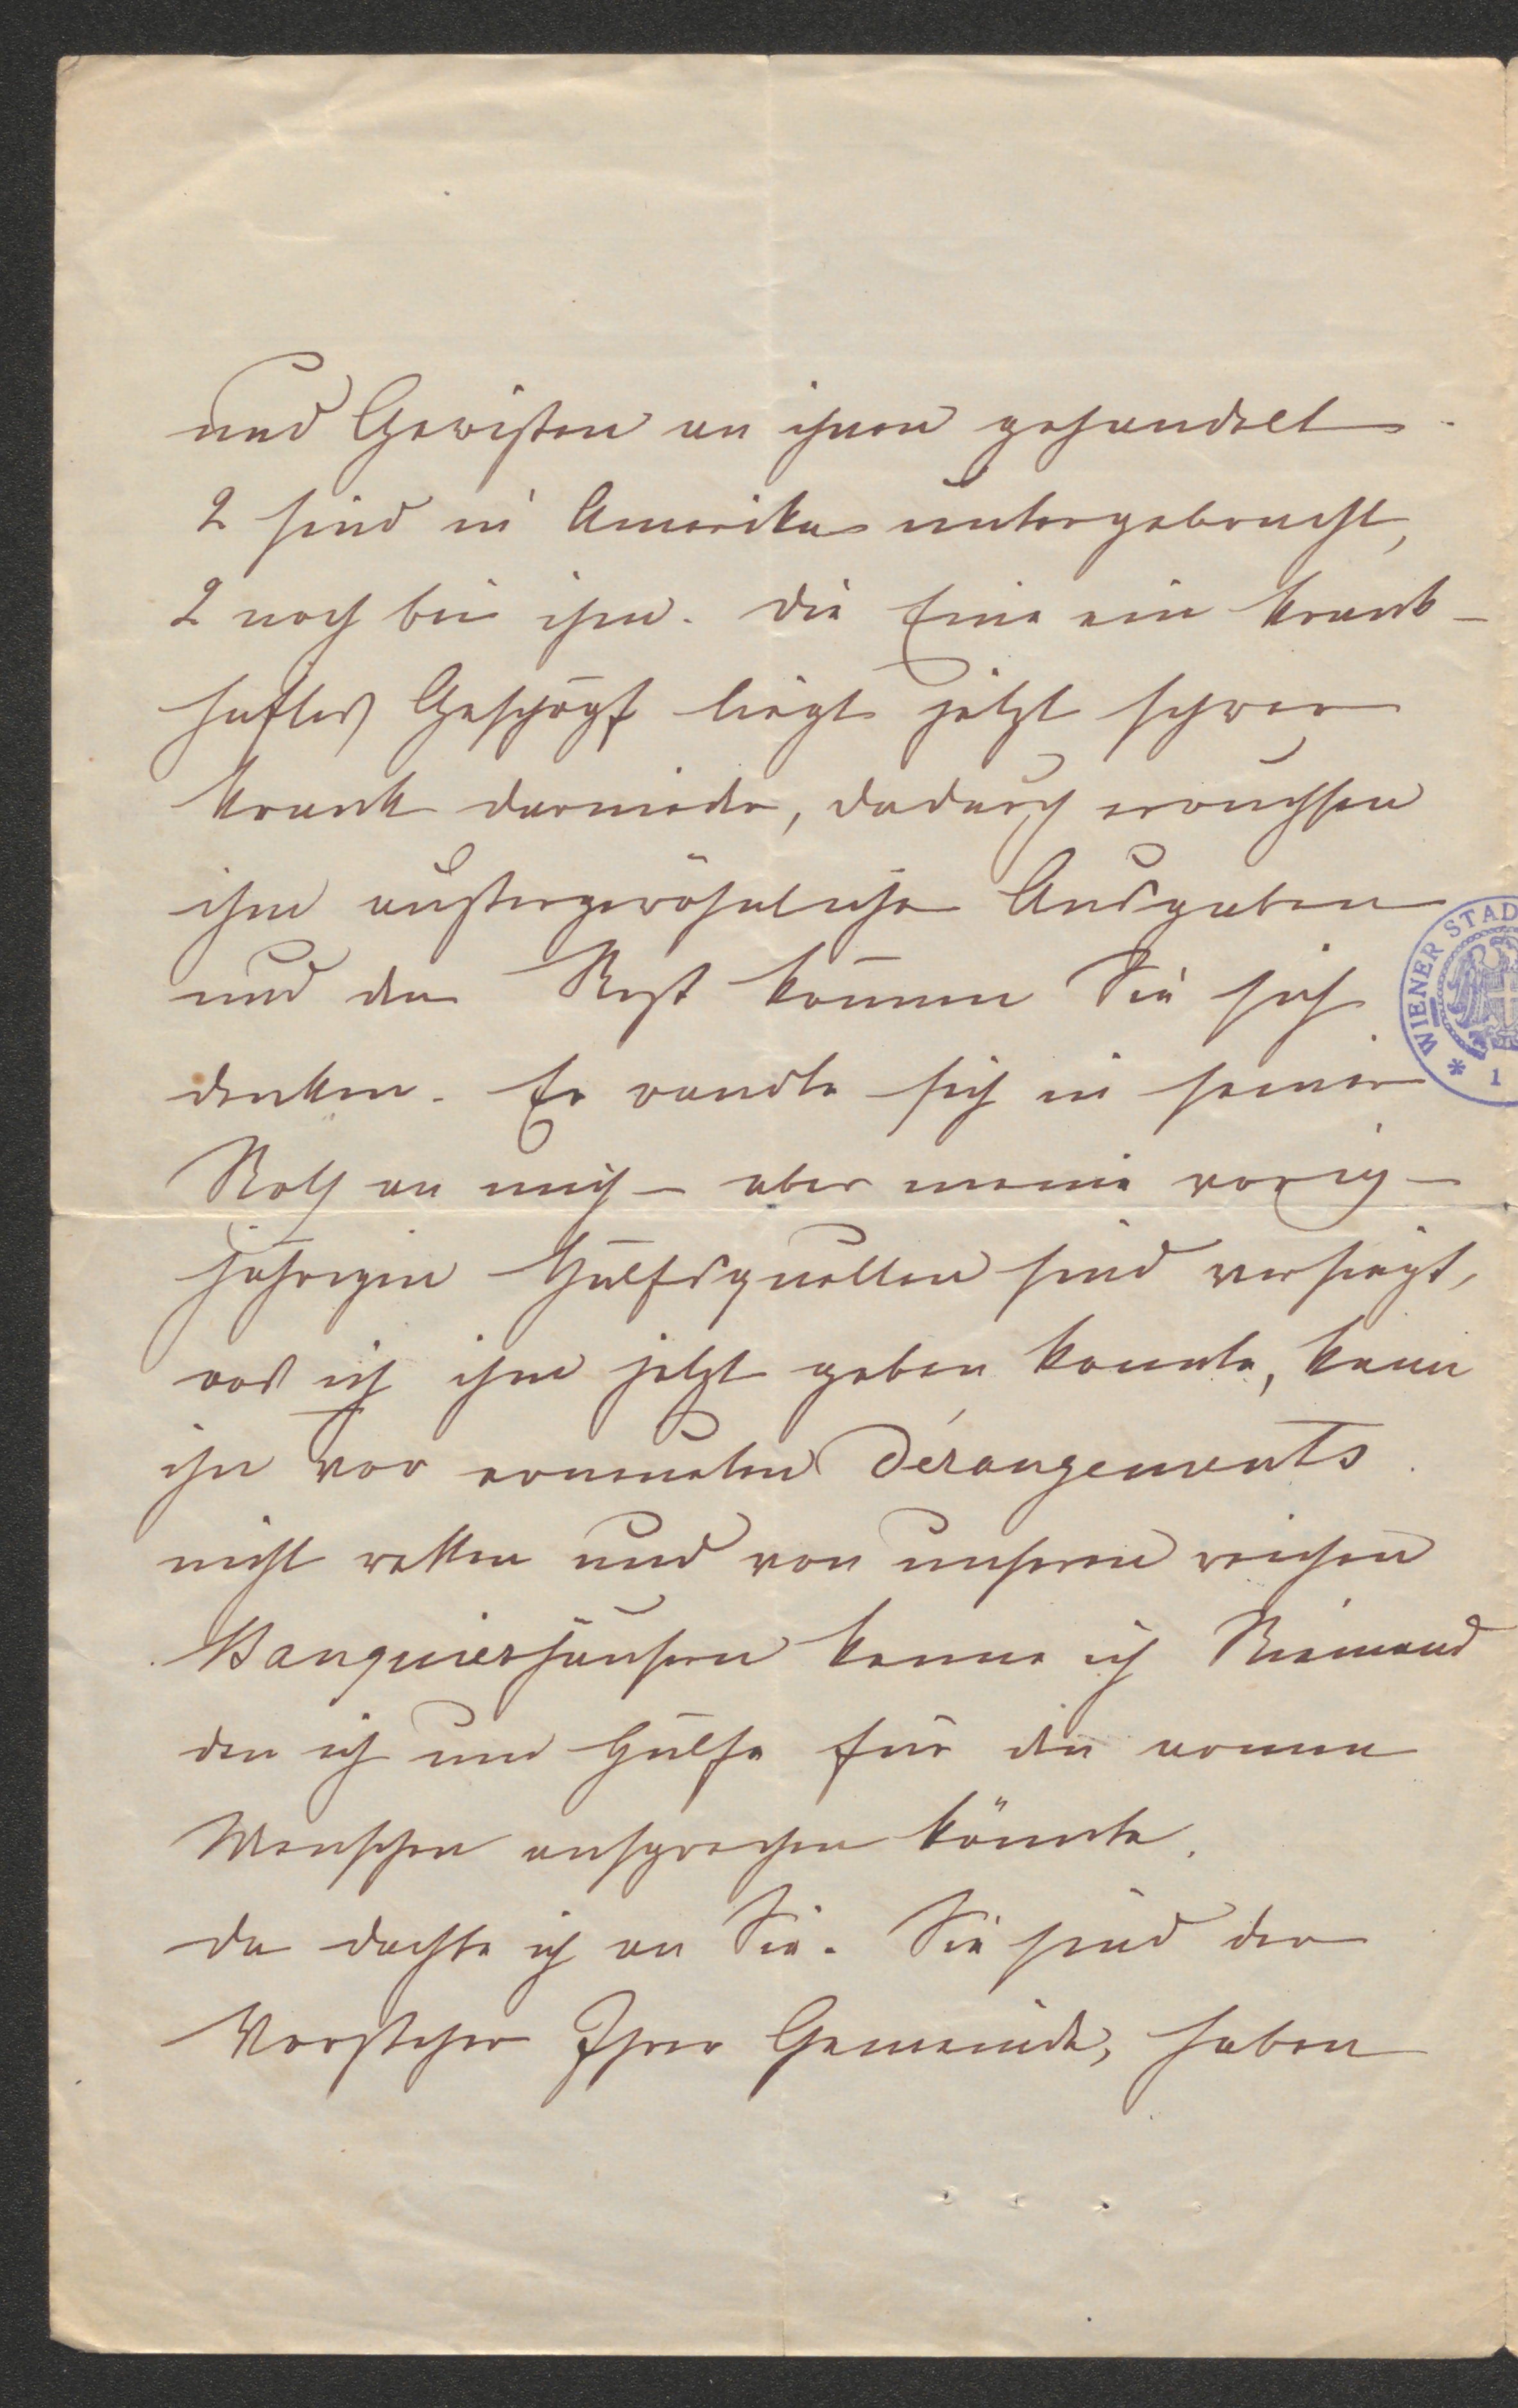 und Gewissen an ihnen gehandelt.
2 sind in Amerika untergebracht,
2 noch bei ihm. Die Eine ein krank-
haftes Geschöpf liegt jetzt schwer
krank darnieder, dadurch erwuchsen
ihm aussergewöhnliche Ausgaben
und den Rest können Sie sich
denken. Er wandte sich in seiner
Noth an mich – aber meine vorig-
jährigen Hülfsquellen sind versiegt,
was ich ihm jetzt geben konnte, kann
ihn vor erneuten Dérangements
nicht retten und von unseren reichen
Banquierhäusern kenne ich Niemand
den ich um Hülfe für den armen
Menschen ansprechen könnte.
Da dachte ich an Sie. Sie sind der
Vorsteher Ihrer Gemeinde, haben
WIENER STAD
* 1